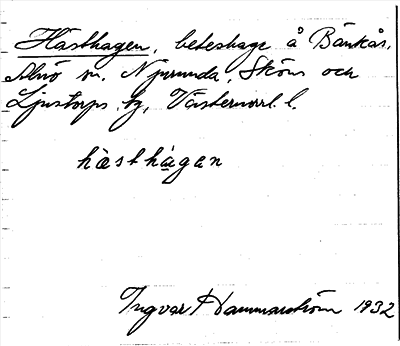 Hästhagen, beteshage å Bänkås,
Alnö sn. Njurunda, Sköns och
Ljustorps tg, Västernorrl. l.
hàsthàgan
Ingvar Hammarström 1932